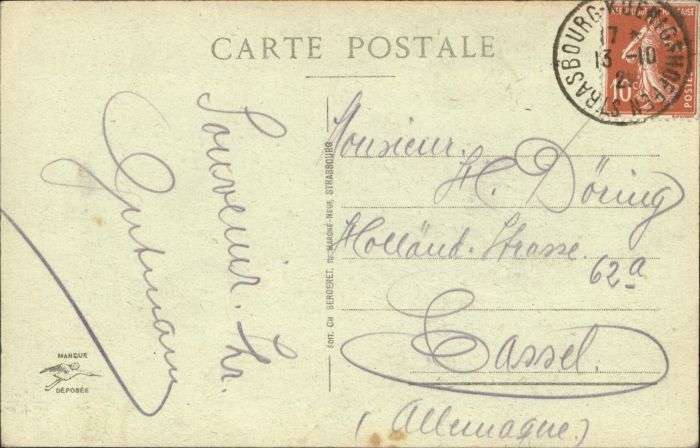 CARTE POSTALE
STRASBOURG-KŒNIGSHOFFEN
17 *
13 -10
2
10c
POSTES
Souvenir. Hr.
Gutmann
Monsieur.
H. Döring
Holländ. Strasse.
62a
Cassel.
(Allemagne)
EDIT. CH BERGERET, MARCHÉ-NEUF, STRASBOURG
MARQUE
DÉPOSÉE